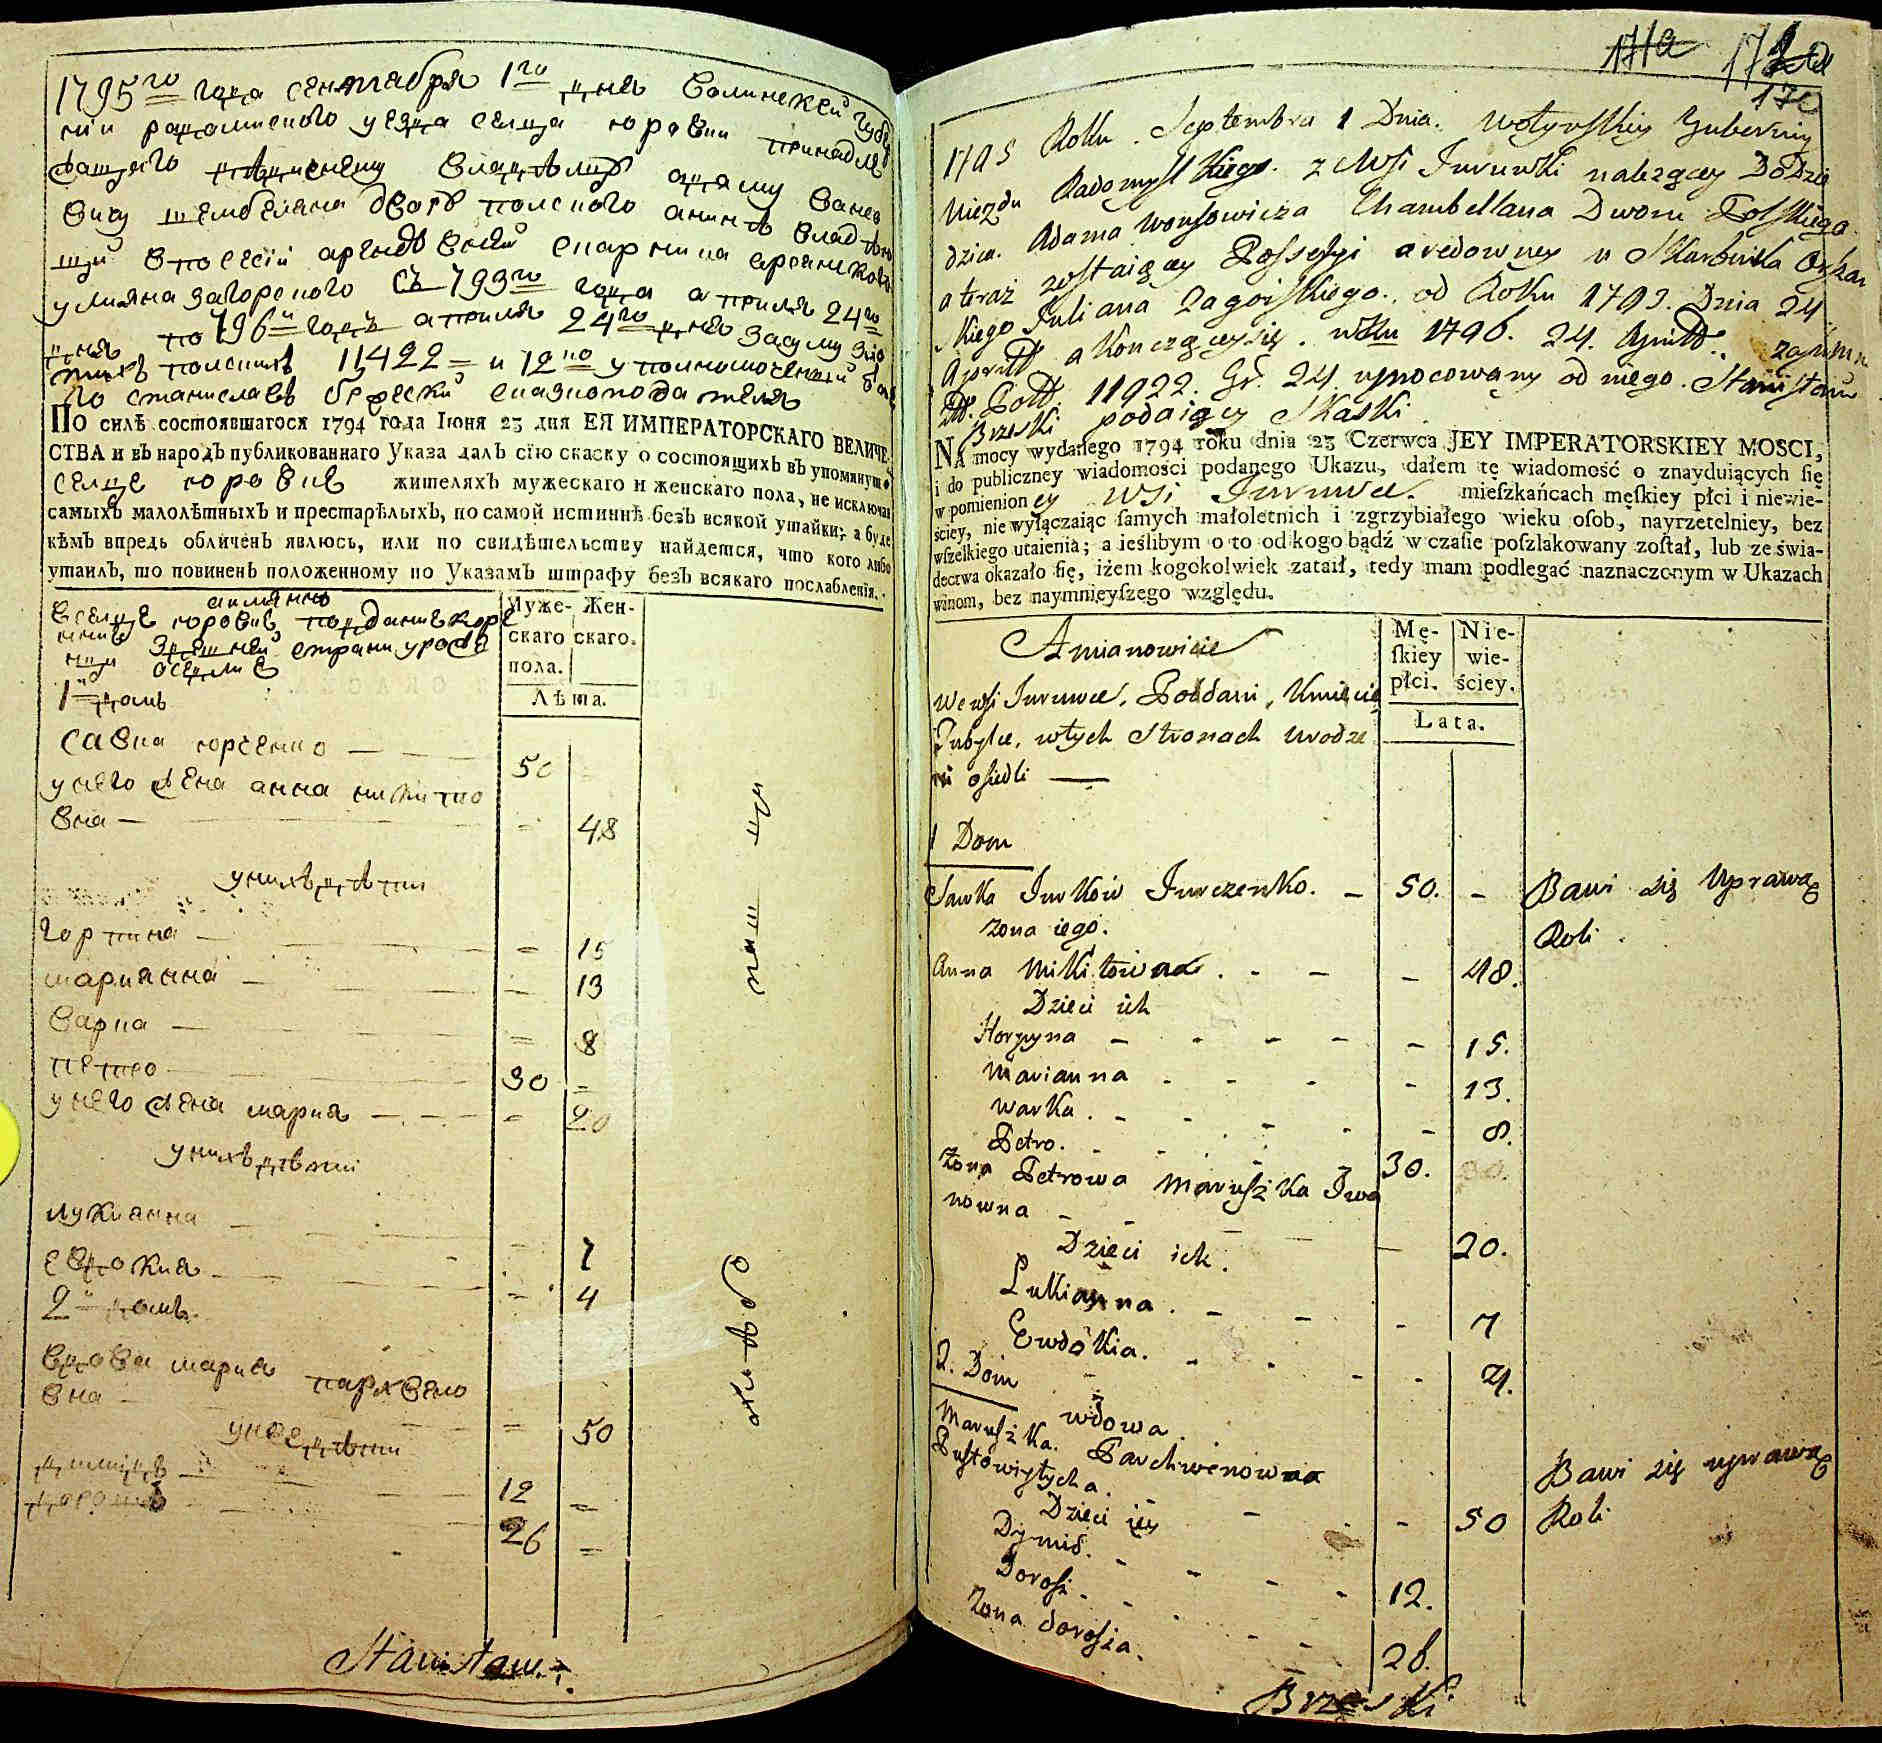 1795го года сентября 1го дня Волинской губер
нии радомиского уезда селца юровки принадле
жащаго владелцу адаму вансо
вичу шамбеляна двора полского а нине владею
щий в посесии
улияна загорского съ 793го года априля 24го
дня по 796й годъ априля 24го дня засуму зло
тихъ полскихъ 11,422 = и 12по уполномоченний
го станиславъ бржеский сказкоподатель
По силѣ состоявшагося 1794 года Іюня 23 дня ЕЯ ИМПЕРАТОРСКАГО ВЕЛИЧЕ-
СТВА и въ народъ публикованнаго Указа далъ сію скаску о состоящихъ въ упомянуто
селце юровке жителяхъ мужескаго и женскаго пола, не исключая
самыхъ малолѣтныхъ и престарѣлыхъ, по самой истиннѣ безъ всякой утайки; а буде
кѣмъ впредь обличенъ явлюсь, или по свидѣтельству найдется, что кого либо
утаилъ, то повиненъ положенному по Указамъ штрафу безъ всякаго послабленія.
имянно
Вселце юровке поддание
страни уроже
нци оседлие
Муже- Жен-
скаго скаго.
пола.
Лѣта.
1й домъ
савка юрченко 50
унего жена анна никитио
вна 48
унихъ дети
горпина 15
марианна 13
варка 8
петро 30
унего жена мария 20
унихъ дети
лукианна 7
евдокия 4
2й домъ
вдова мария пархвено
вна 50
унее дети
12
26
Stanisław
171a 172a
170
1795 Roku Septembra 1 Dnia. Wołyńskiey Gubernii
Uiezdu Radomysl Kiego. z Wsi Jurowki należącey Do Dzie
dzica. Adama Wonsowicza Chambellana Dworu Polskiego
a teraz zostaiącey Possessyi aredowney u Skarbnika
skiego Juliana Zagorskiego. od Roku 1793. Dnia 24
Aprill a Konczącey się. roku 1796. 24. Aprill. za summ
Poll. 11922. Gr. 24 upnocowany od niego. Stanisław
Brzeski podaiący Skaski
NA mocy wydanego 1794 roku dnia 23 Czerwca JEY IMPERATORSKIEY MOSCI,
i do publiczney wiadomości podanego Ukazu, dałem tę wiadomość o znayduiących ſię
w pomienioney Wsi Jurowce. mieſzkańcach męſkiey płci i niewie-
ściey, nie wyłączaiąc ſamych małoletnich i zgrzybiałego wieku oſob, nayrzetelniey, bez
wſzelkiego utaienia; a ieślibym o to od kogo bądź w czaſie poſzlakowany zoſtał, lub ze świa-
dectwa okazało ſię, iżem kogokolwiek zataił, tedy mam podlegać naznaczonym w Ukazach
winom, bez naymnieyſzego względu.
Amianowicie
We wsi Jurowce, Poddani, Kmiecie
Tubylce, wtych Stronach urodze
ni osiedli
Mę- Nie-
ſkiey wie-
płci. ściey.
Lata.
1 Dom
Sawka Jurków Jurczenko. 50. Bawi się Uprawą
Żona iego. Roli.
Anna Mikitowna. 48.
Dzieci ich
Horpyna 15.
Marianna 13.
Warka. 8.
Petro. 30.
Żona Petrowa Maruszka Iwa
nowna 20.
Dzieci ich.
Lukianna. 7
Ewdokia. 4.
2. Dom
wdowa
Maruszka. Parchwenowna Bawi się uprawą
Pustowiytycha. 50 Roli
Dzieci iey
Dymid. 12.
Dorosz. 26.
Żona dorosza.
Brzeski